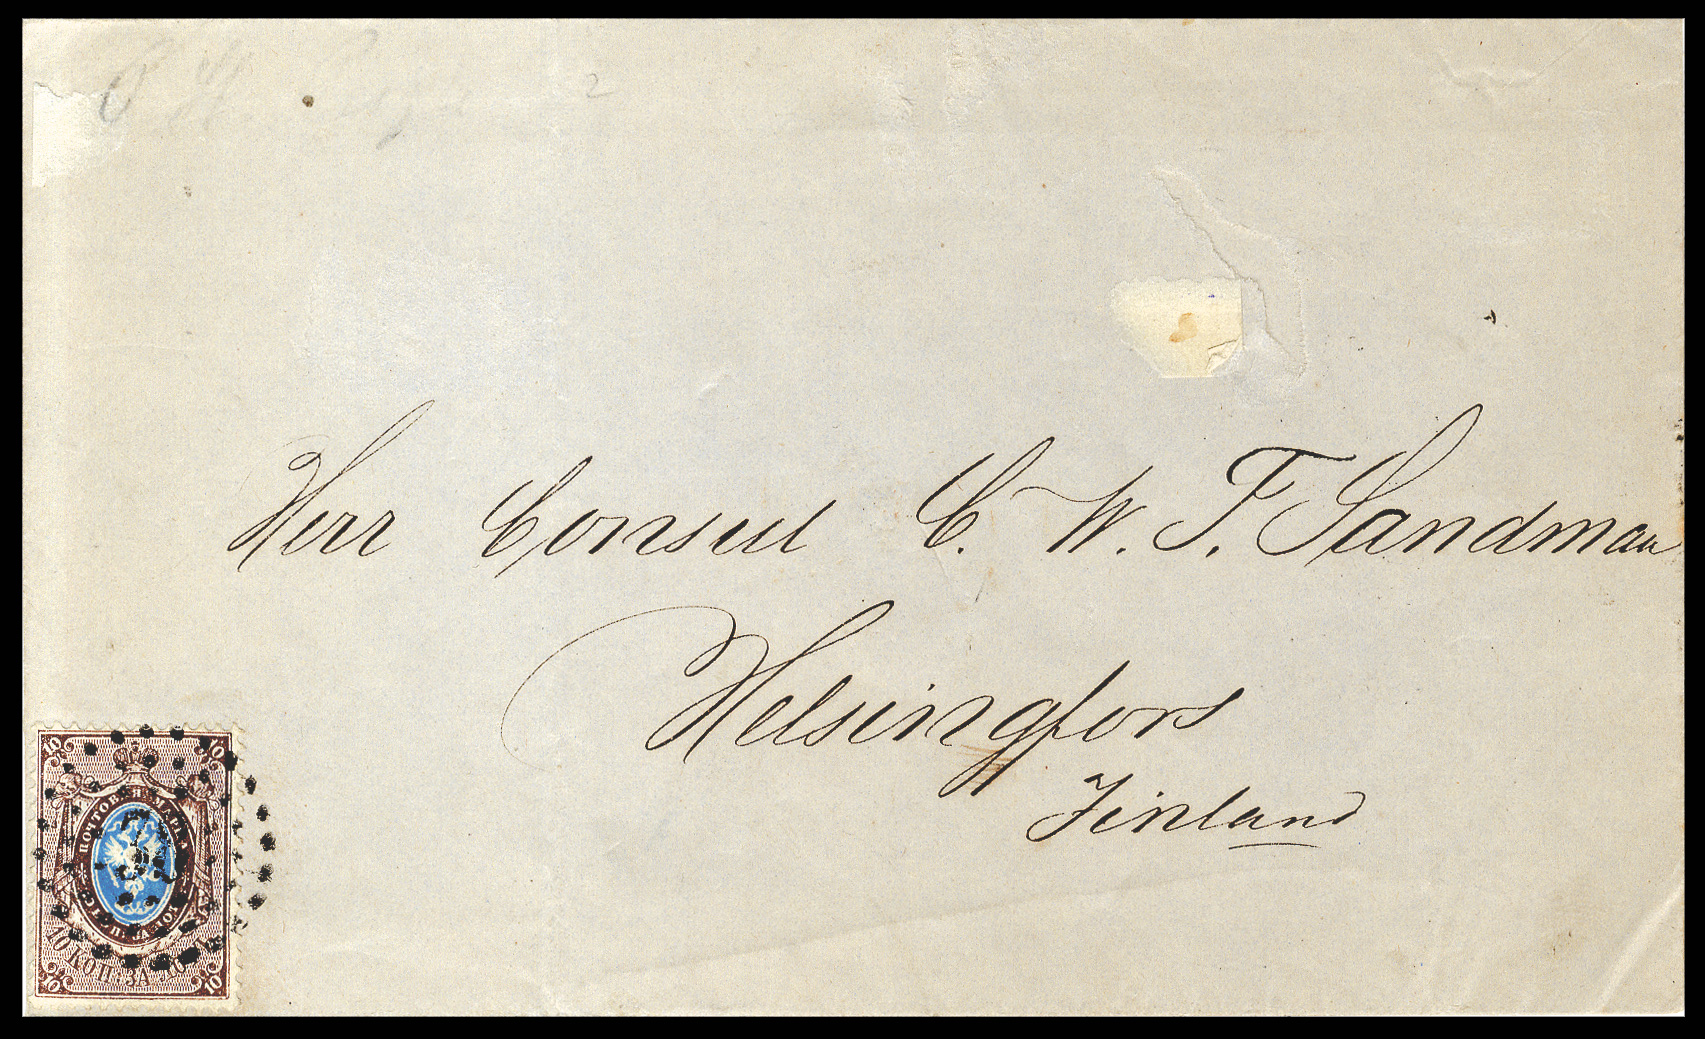 2
Herr Consul C. W. T. Sandman
Helsingfors
Finland
10 10
ПОЧТОВАЯ МАРКА
10 КОП. ЗА ЛОТЪ
10 10